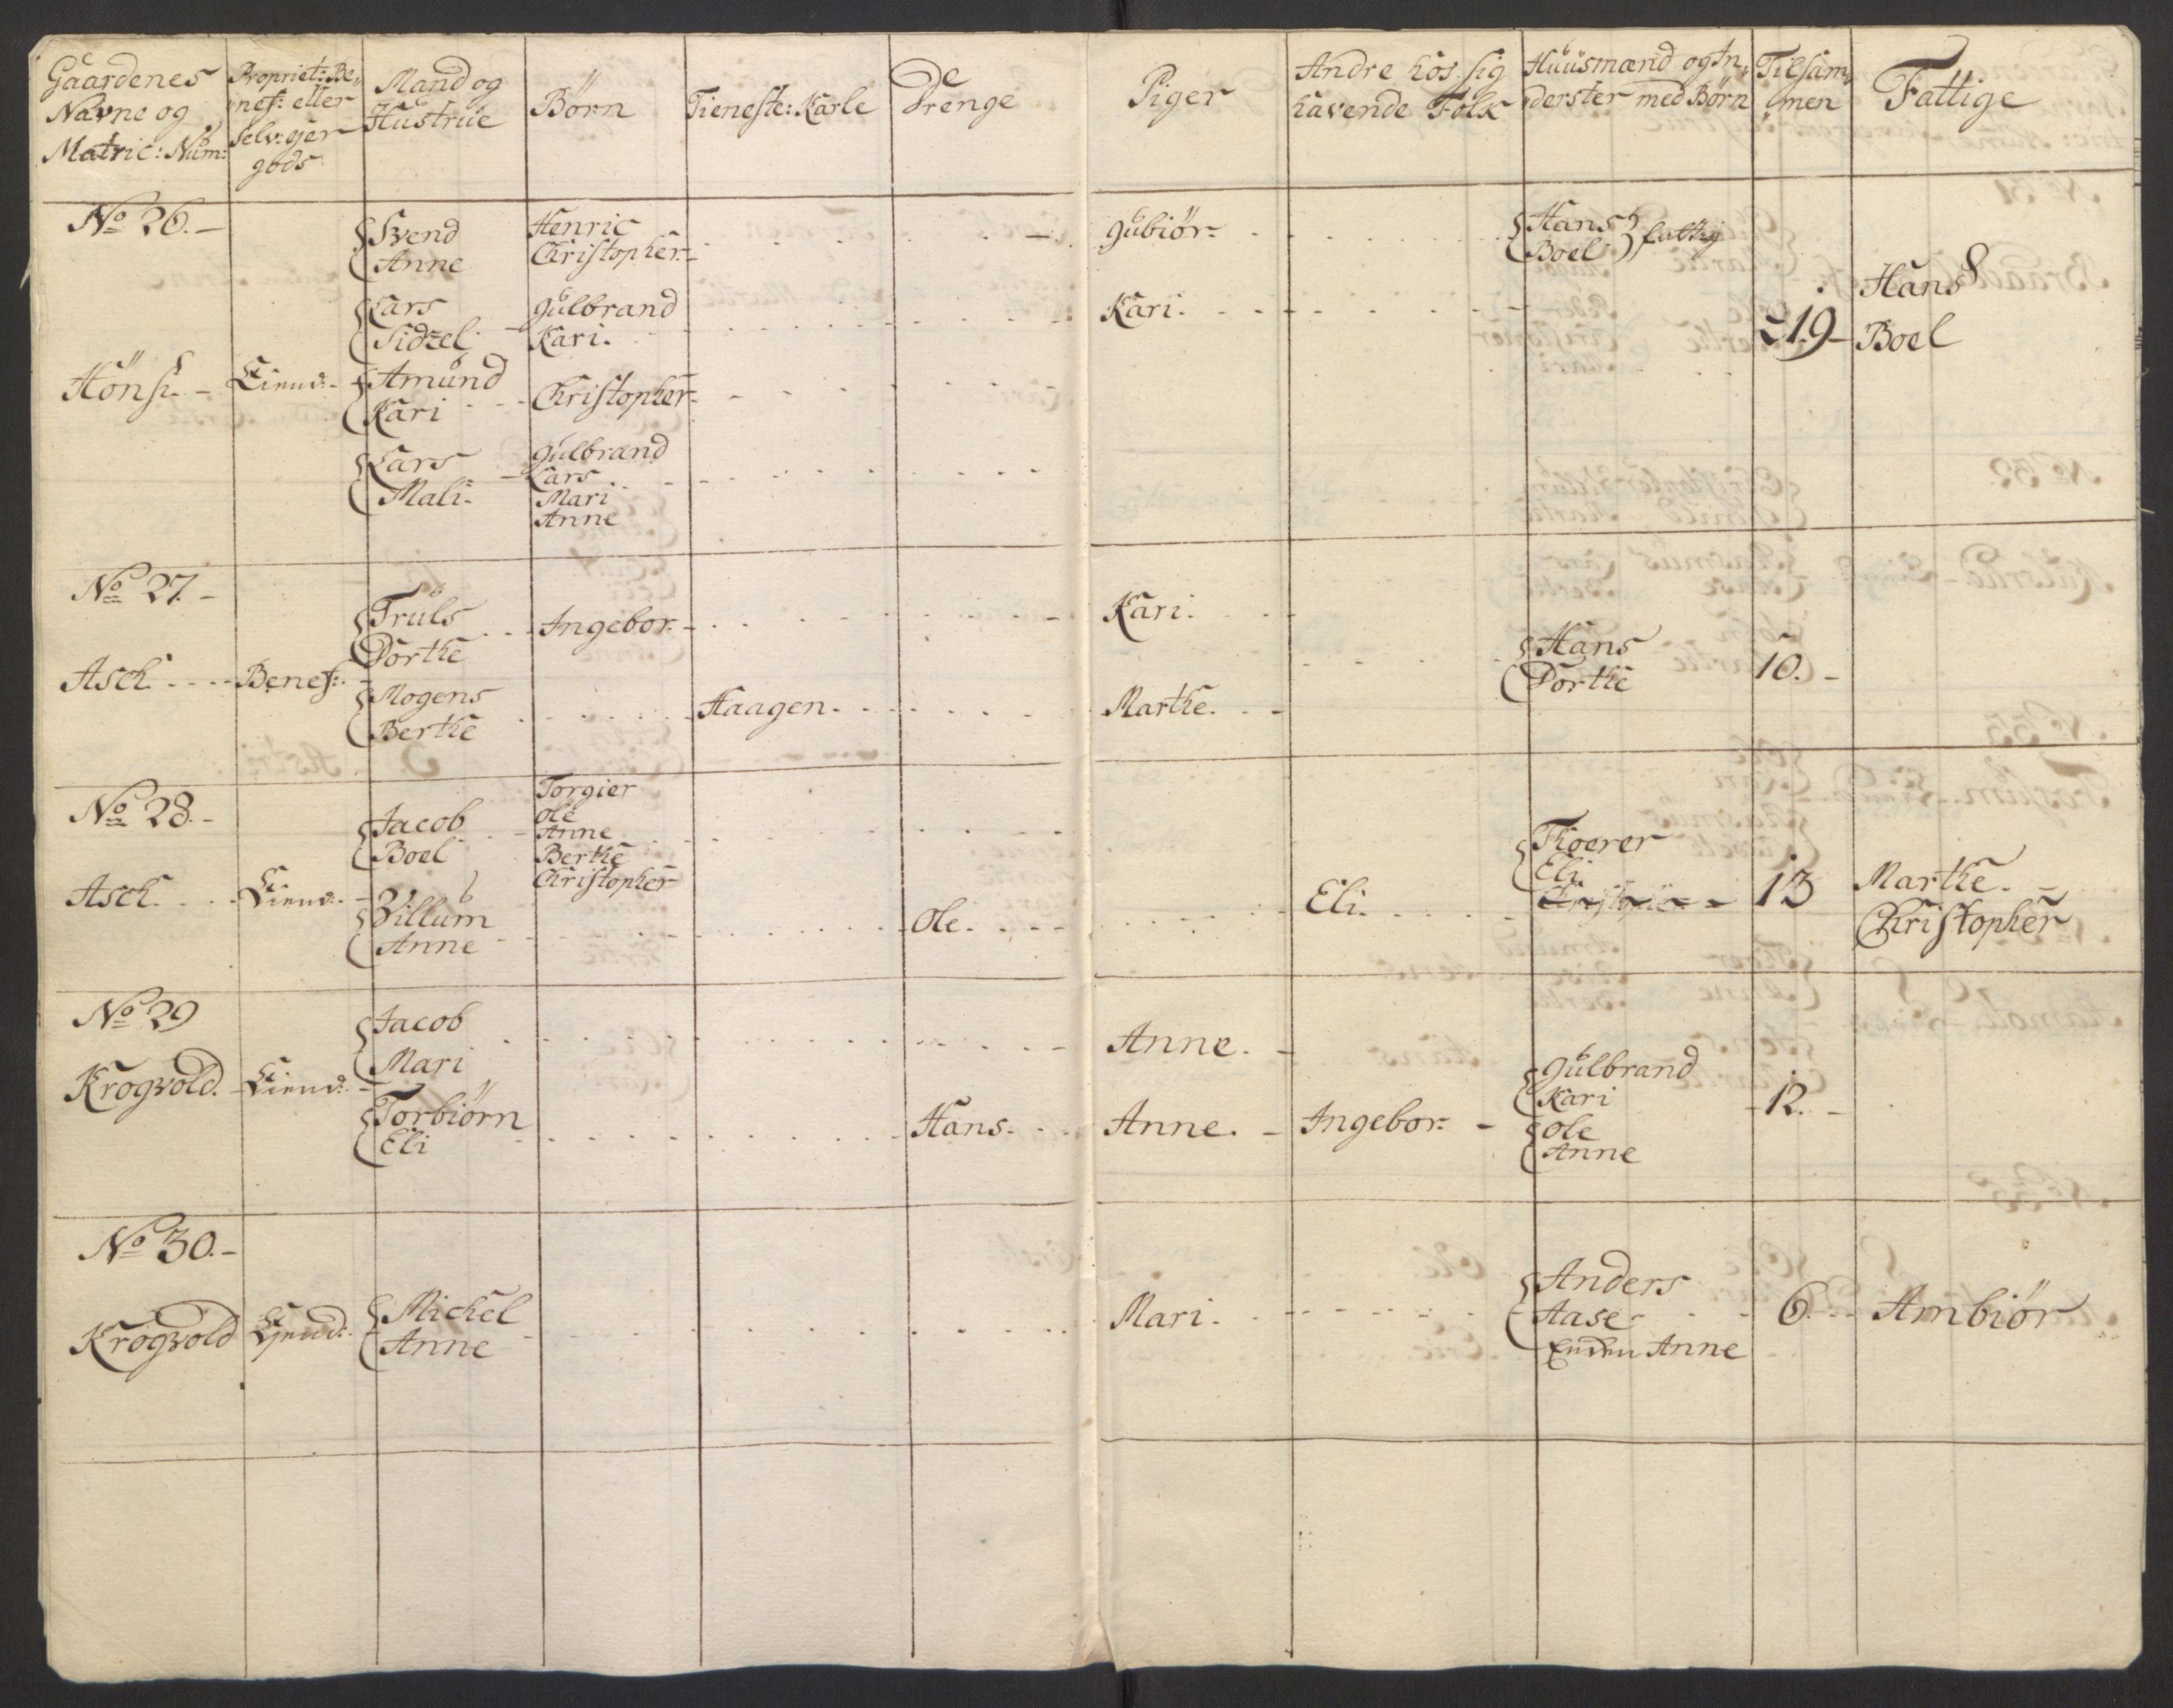 Gaardenes Navne og Matric: Num:
Propriet: Be„nef: eller Selv: ejer gods
Mand og Hustrue
Børn
Tieneste: Karle
De Drenge
Piger
Andre hos sig havende Folk
Huusmænd og In„derster med Børn
Tilsam„men
Fattige
No 26.
Svend
Anne
Henric
Christopher
Gubiør
Hans
Boel
fattig
Lars
Sidzel
Gulbrand
Kari
Kari
19
Hans
Boel
Hönsi
Amund
Kari
Christopher
Lars
Mali
Gulbrand
Lars
Mari
Anne
No 27
Truls
Dorthe
Ingebor
Kari
Hans
Dorthe
10.
Asch
Benef:
Mogens
Berthe
Haagen
Marthe
No 28
Jacob
Boel
Torgier
Ole
Anne
Berthe
Christopher
Thoerer
Eli
Christopher
13
Marthe
Christopher
Asch
Villum
Anne
Ole
Eli
No 29
Jacob
Mari
Anne
Krogvold
Gulbrand
Kari
12.
Torbiørn
Eli
Hans
Anne
Ingebor
Ole
Anne
No 30.
Krogvold
Michel
Anne
Mari
Anders
Aase
Anne
6.
Ambiör